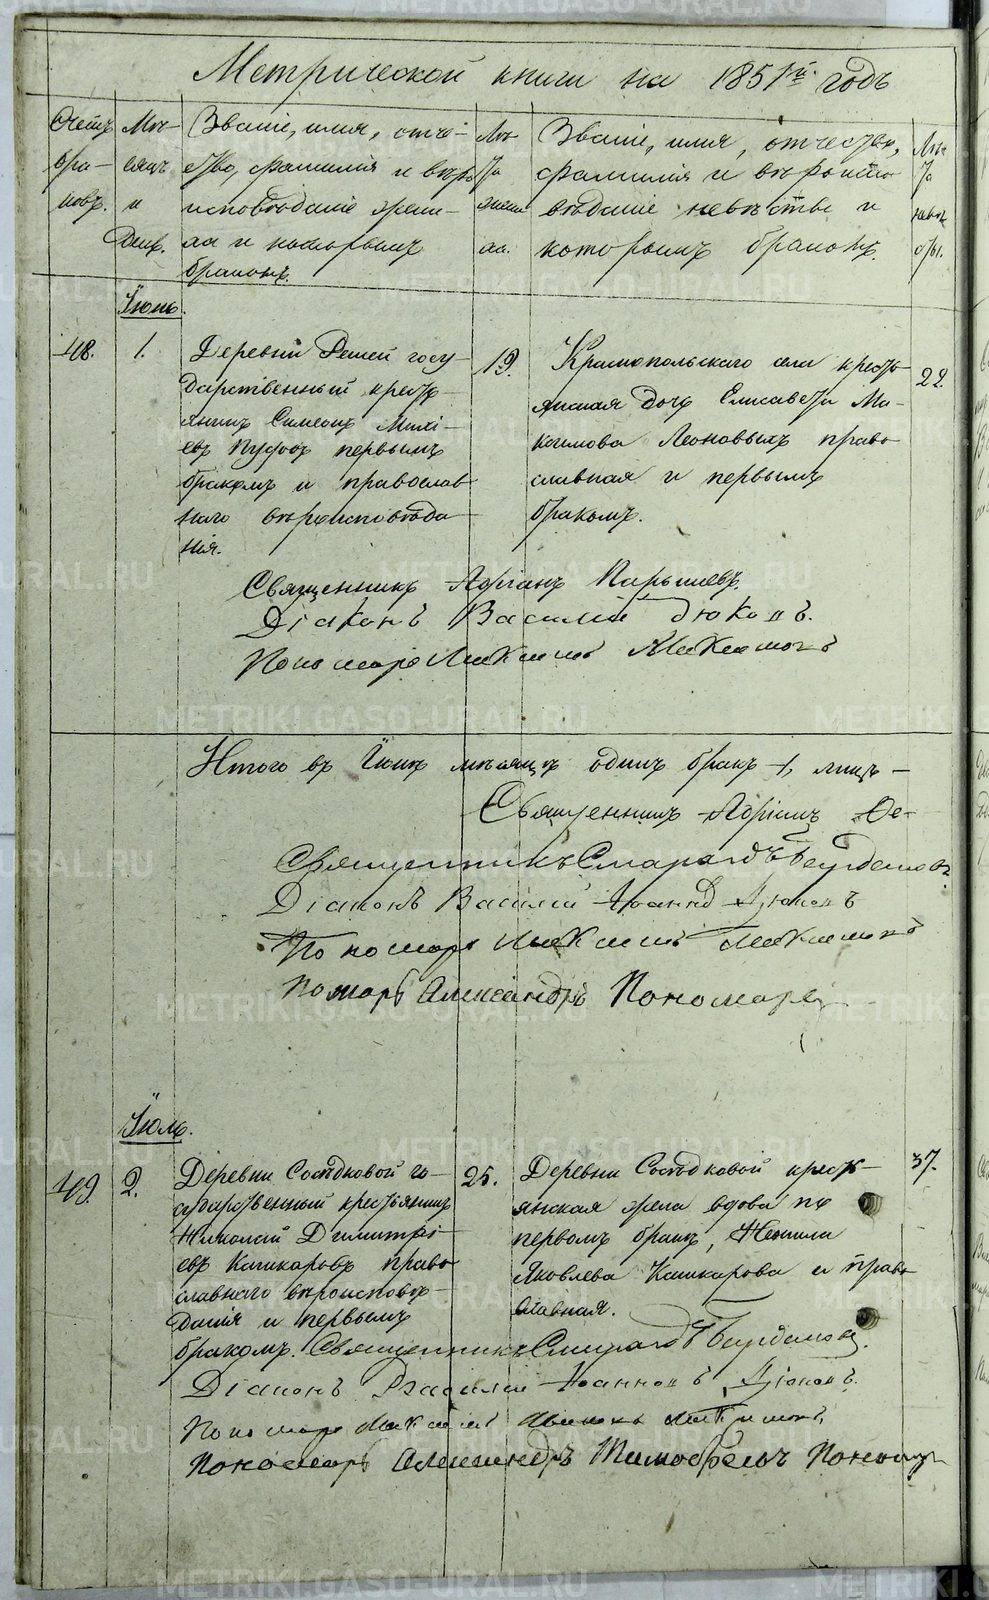 Метрической книги на 1851й годъ
Счетъ бра- ковъ.
Мѣ- сяцъ и День.
Званіе, имя, отче-
ство, фамилія и вѣро
исповѣданіе жени-
ха и которымъ
бракомъ.
Лѣ та жени ха.
Званіе, имя, отчество,
фамилія и вѣроиспо
вѣданіе невѣсты и
которымъ бракомъ.
Лѣ та невѣ сты.
Іюнь.
48. 1.
Деревни Решей госу-
дарственный кресть-
янинъ Симеонъ
первымъ
бракомъ и православ
наго вѣроисповѣда
нія.
19.
Крамопольскаго села кресть-
янская дочь Елисавета Ма-
ксимова Леоновыхъ право
славная и первымъ
бракомъ.
22.
Священникъ Адріанъ
Діаконъ Василій Дюковъ.
Пономарь
Итого въ Іюнѣ мѣсяцѣ одинъ бракъ 1, лицъ -
Священникъ Адріанъ
Священникъ Смарагдъ
Діаконъ Василій Іоанновъ Дюковъ
Пономарь
Александръ Пономарев
Іюль.
49. 2.
Деревни Состковой го-
сударственный крестьянинъ
Николай Димитрі-
евъ Кашкаровъ право
славнаго вѣроисповѣ-
данія и первымъ
бракомъ.
25.
Деревни Состковой кресть-
янская жена вдова по
первомъ бракѣ,
Яковлева Кашкарова и право
славная.
37.
Священникъ Смарагдъ
Діаконъ Василій Іоанновъ Дюковъ.
Пономарь
Пономарь Александръ